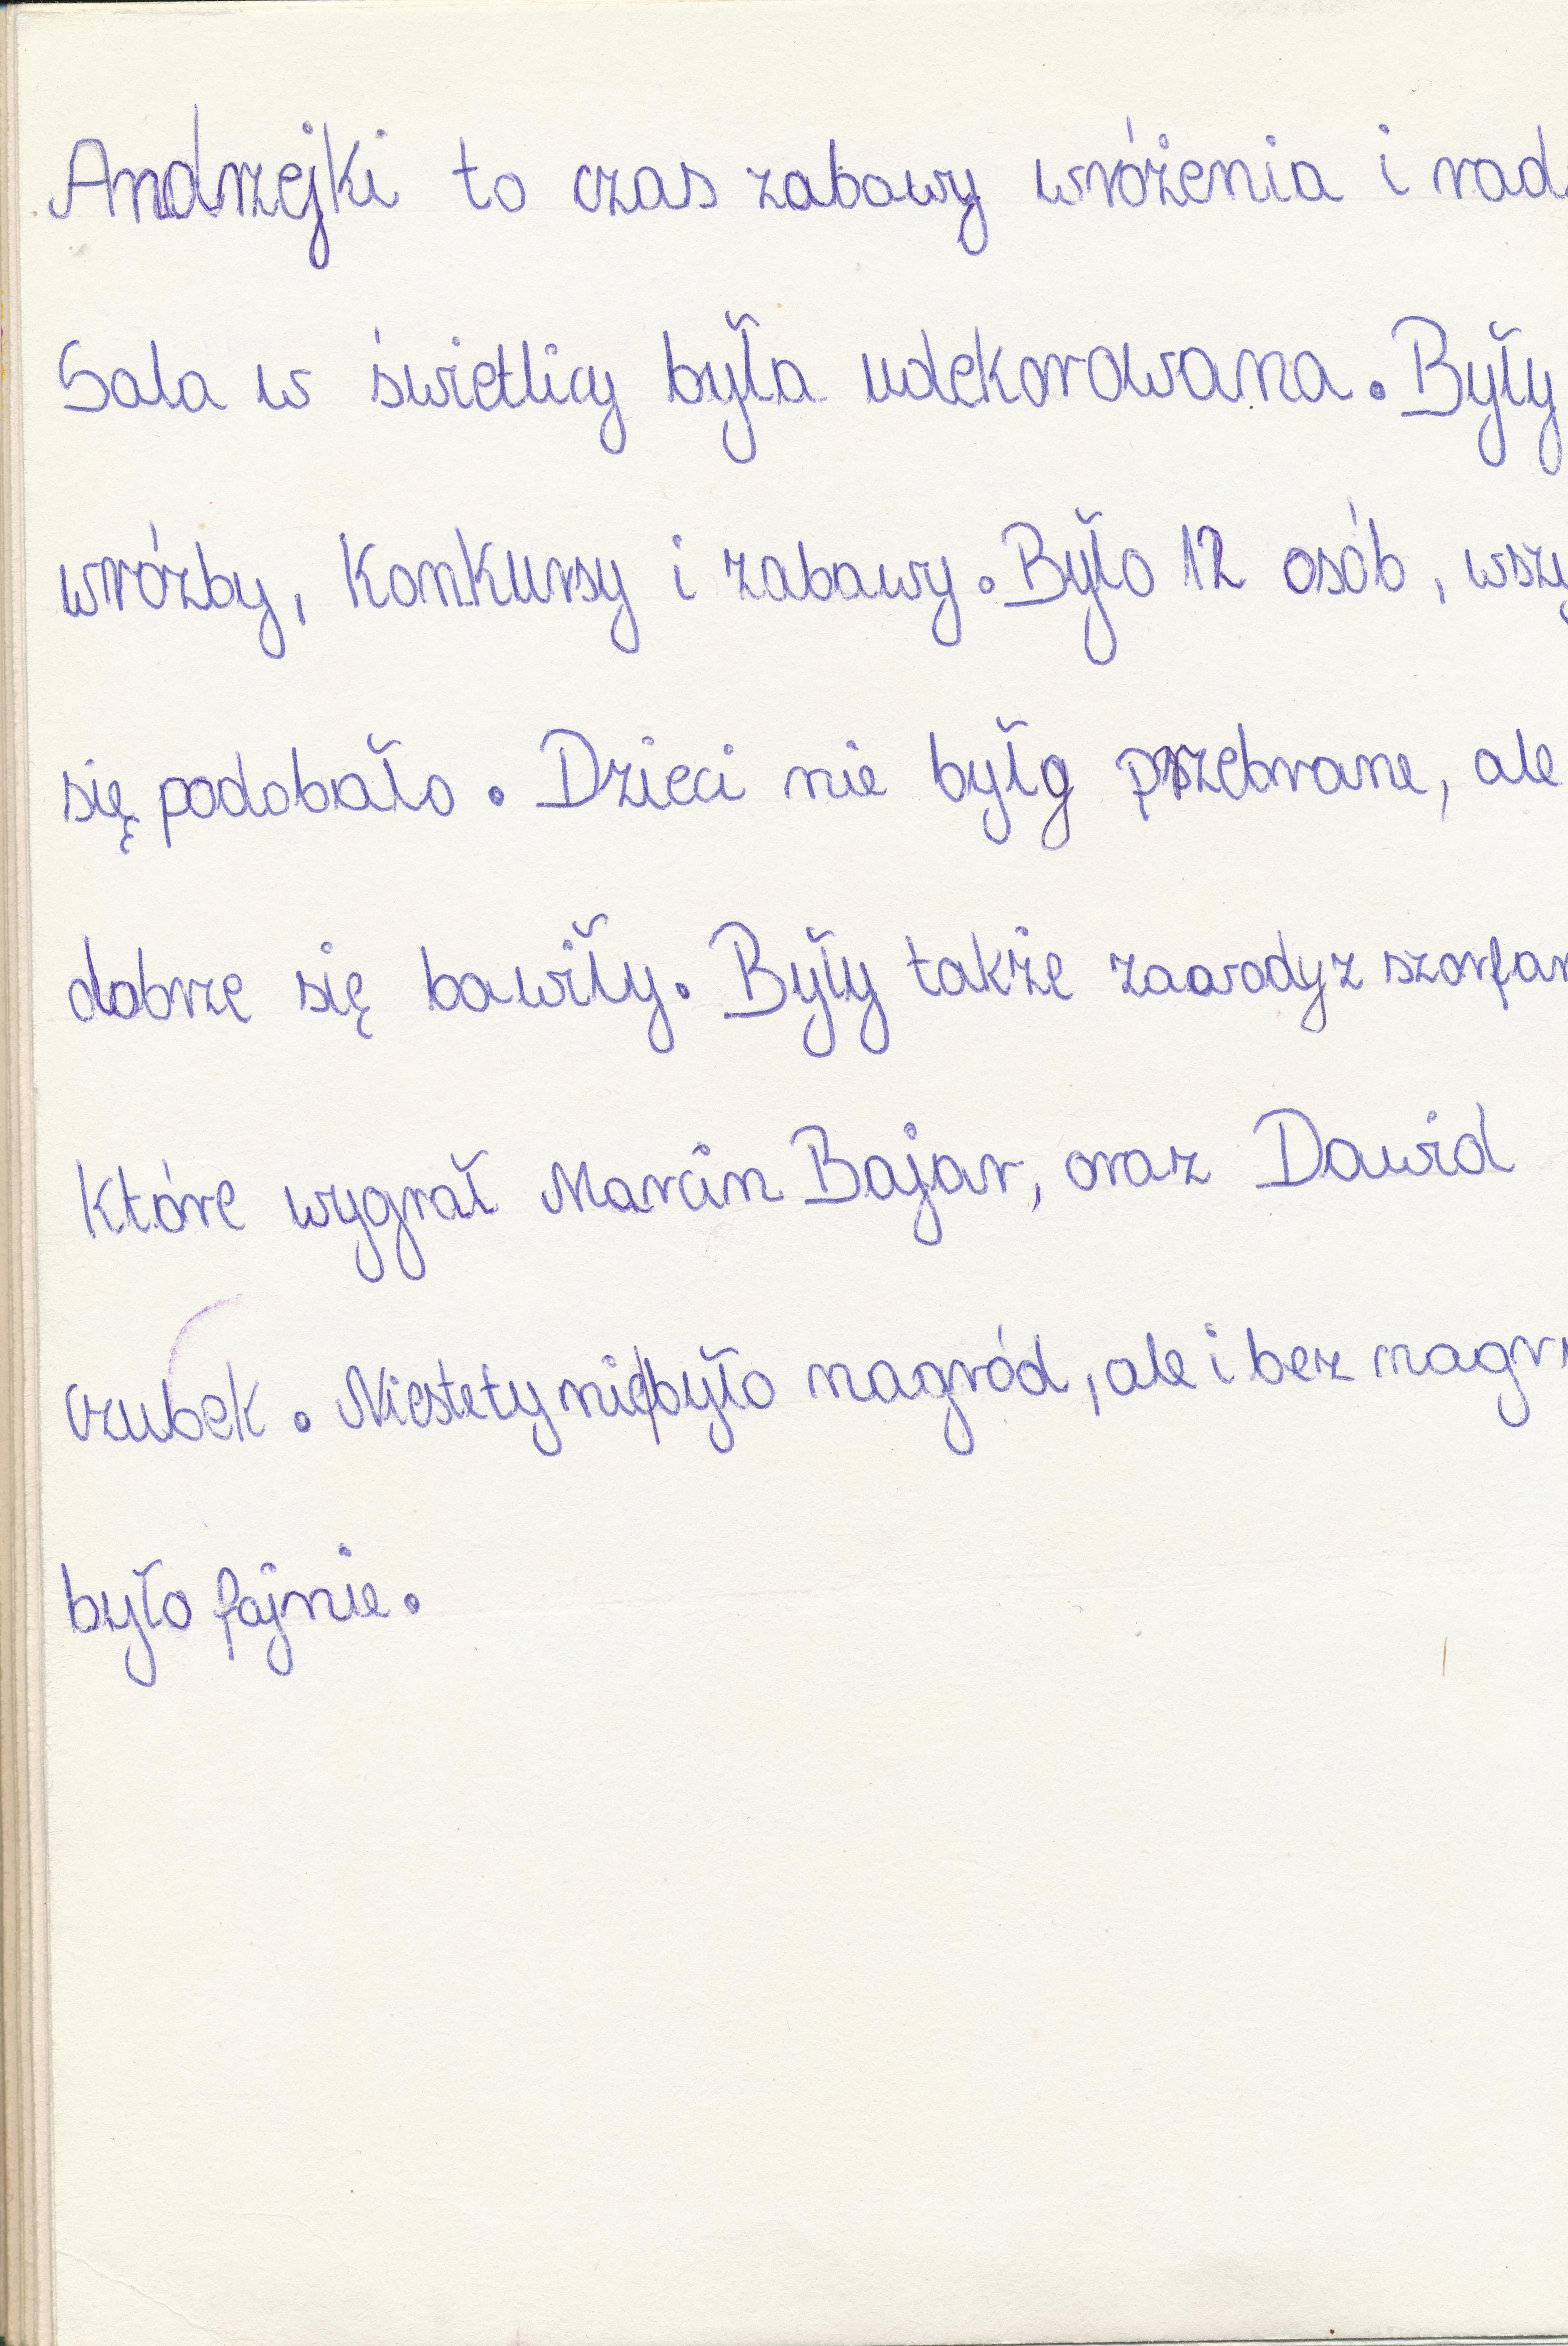 Andrzejki to czas zabawy wróżenia i rad
Sala w świetlicy była udekorowana. Były
wrózby, konkursy i zabawy. Było 12 osób, wszy
się podobało. Dzieci nie były przebrane, ale
dobrze się bawiły. Były także zawody z szorfam
które wygrał Marcin Bajar, oraz Dawid
czubek. Niestety nie było nagród, ale i bez nagr
było fajnie.